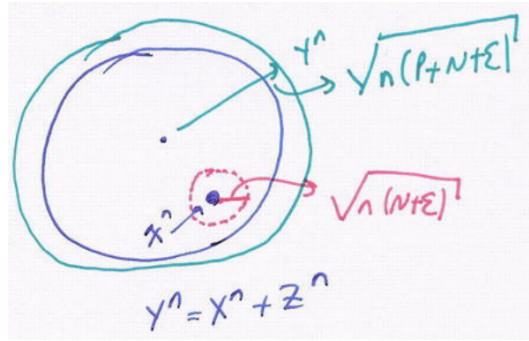 Yⁿ
√n(P+N+ε)
√n(N+ε)
Xⁿ
Yⁿ = Xⁿ + Zⁿ